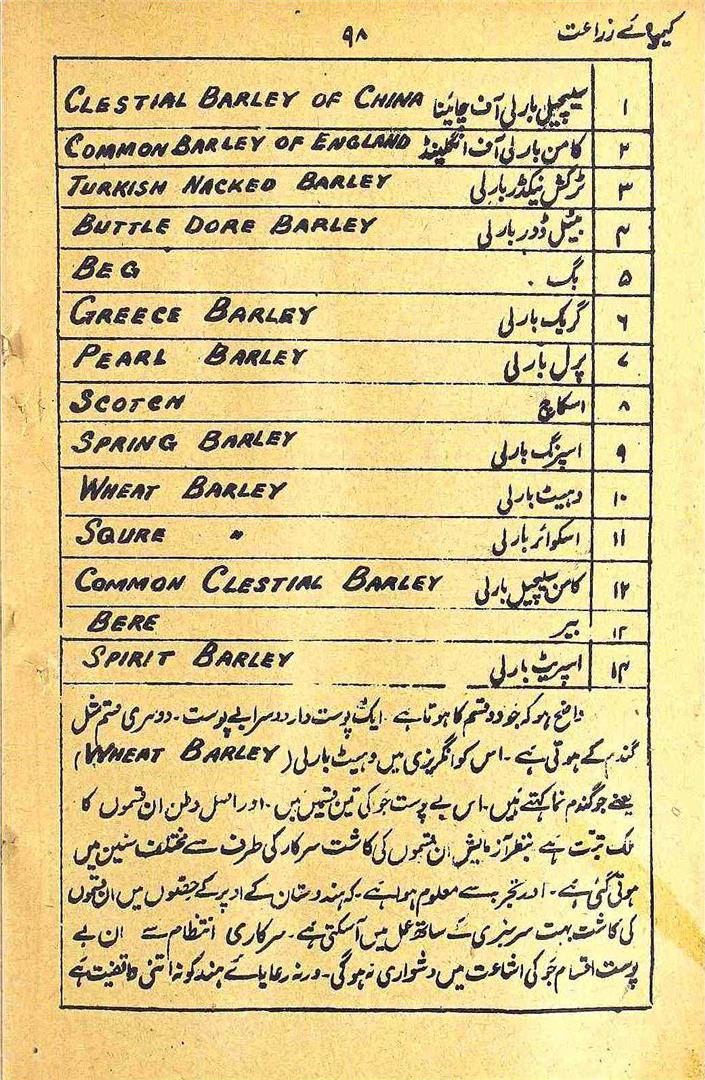 کیمیائے زراعت ۹۸
۱ سیلیچیل بارلی آف چائینا CLESTIAL BARLEY OF CHINA
۲ کامن بارلی آف انگلینڈ COMMON BARLEY OF ENGLAND
۳ ٹرکش نیکڈ بارلی TURKISH NACKED BARLEY
۴ بیٹل ڈور بارلی BUTTLE DORE BARLEY
۵ بگ BEG
۶ گریک بارلی GREECE BARLEY
۷ پرل بارلی PEARL BARLEY
۸ اسکاچ SCOTCH
۹ اسپرنگ بارلی SPRING BARLEY
۱۰ وہیٹ بارلی WHEAT BARLEY
۱۱ اسکوائر بارلی SQURE "
۱۲ کامن سیلیچیل بارلی COMMON CLESTIAL BARLEY
۱۳ بیر BERE
۱۴ اسپریٹ بارلی SPIRIT BARLEY
واضح ہو کہ جو دو قسم کا ہوتا ہے۔ ایک پوست دار دوسرا بے پوست۔ دوسری قسم مثل
گندم کے ہوتی ہے۔ اس کو انگریزی میں وہیٹ بارلی (WHEAT BARLEY)
یعنے جو گندم نما کہتے ہیں۔ اس بے پوست جو کی تین قسمیں ہیں۔ اور اصل وطن ان قسموں کا
ملک تبت ہے بنظر آزمایش ان قسموں کی کاشت سرکار کی طرف سے مختلف سنین میں
ہوتی گئی ہے۔ اور تجربہ سے معلوم ہوا ہے۔ کہ ہندوستان کے اوپر کے حصوں میں ان قسموں
کی کاشت بہت سرسبزی کے ساتھ عمل میں آسکتی ہے۔ سرکاری انتظام سے ان بے
پوست اقسام جو کی اشاعت میں دشواری نہ ہوگی۔ ورنہ رعایائے ہند کو نہ اتنی واقفیت ہے